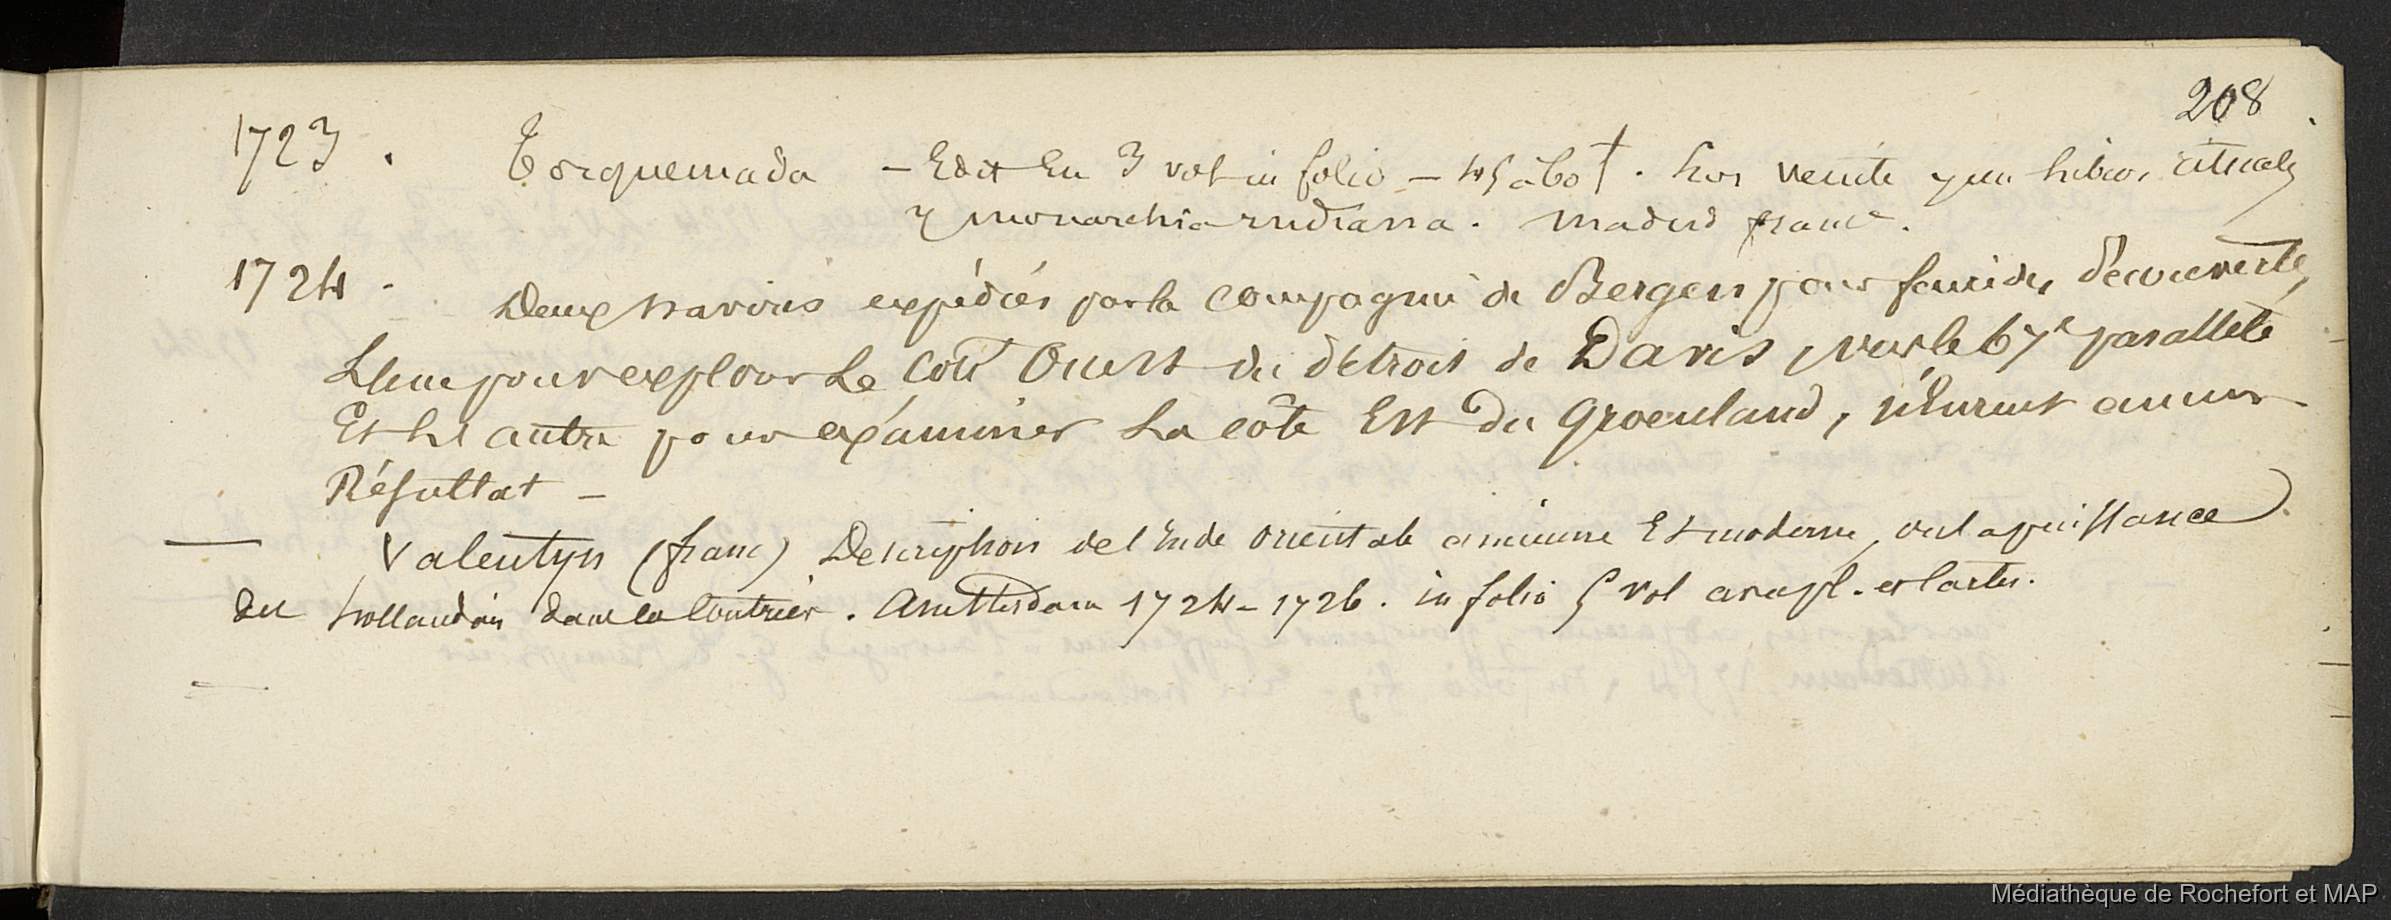 208
1723. Torquemada – Edit En 3 vol in folio – 45 à 60 f. Los veinte y un libros rituales
y monarchia indiana. Madrid franc.
1724. Deux navires expédiés par la compagnie de Bergen pour faire des découvertes,
L'un pour explorer Le Coté Ouest du détroit de Davis, vers le 67e parallele
Et L'autre pour examiner La côte Est du Groenland, n'Eurent aucun
Résultat –
— Valentyn (franc) Description de l'Inde orientale ancienne Et moderne, ou la puissance
des hollandais dans ces Contrées. Amsterdam 1724–1726. in folio 5 vol avec pl. et Cartes.
Médiathèque de Rochefort et MAP